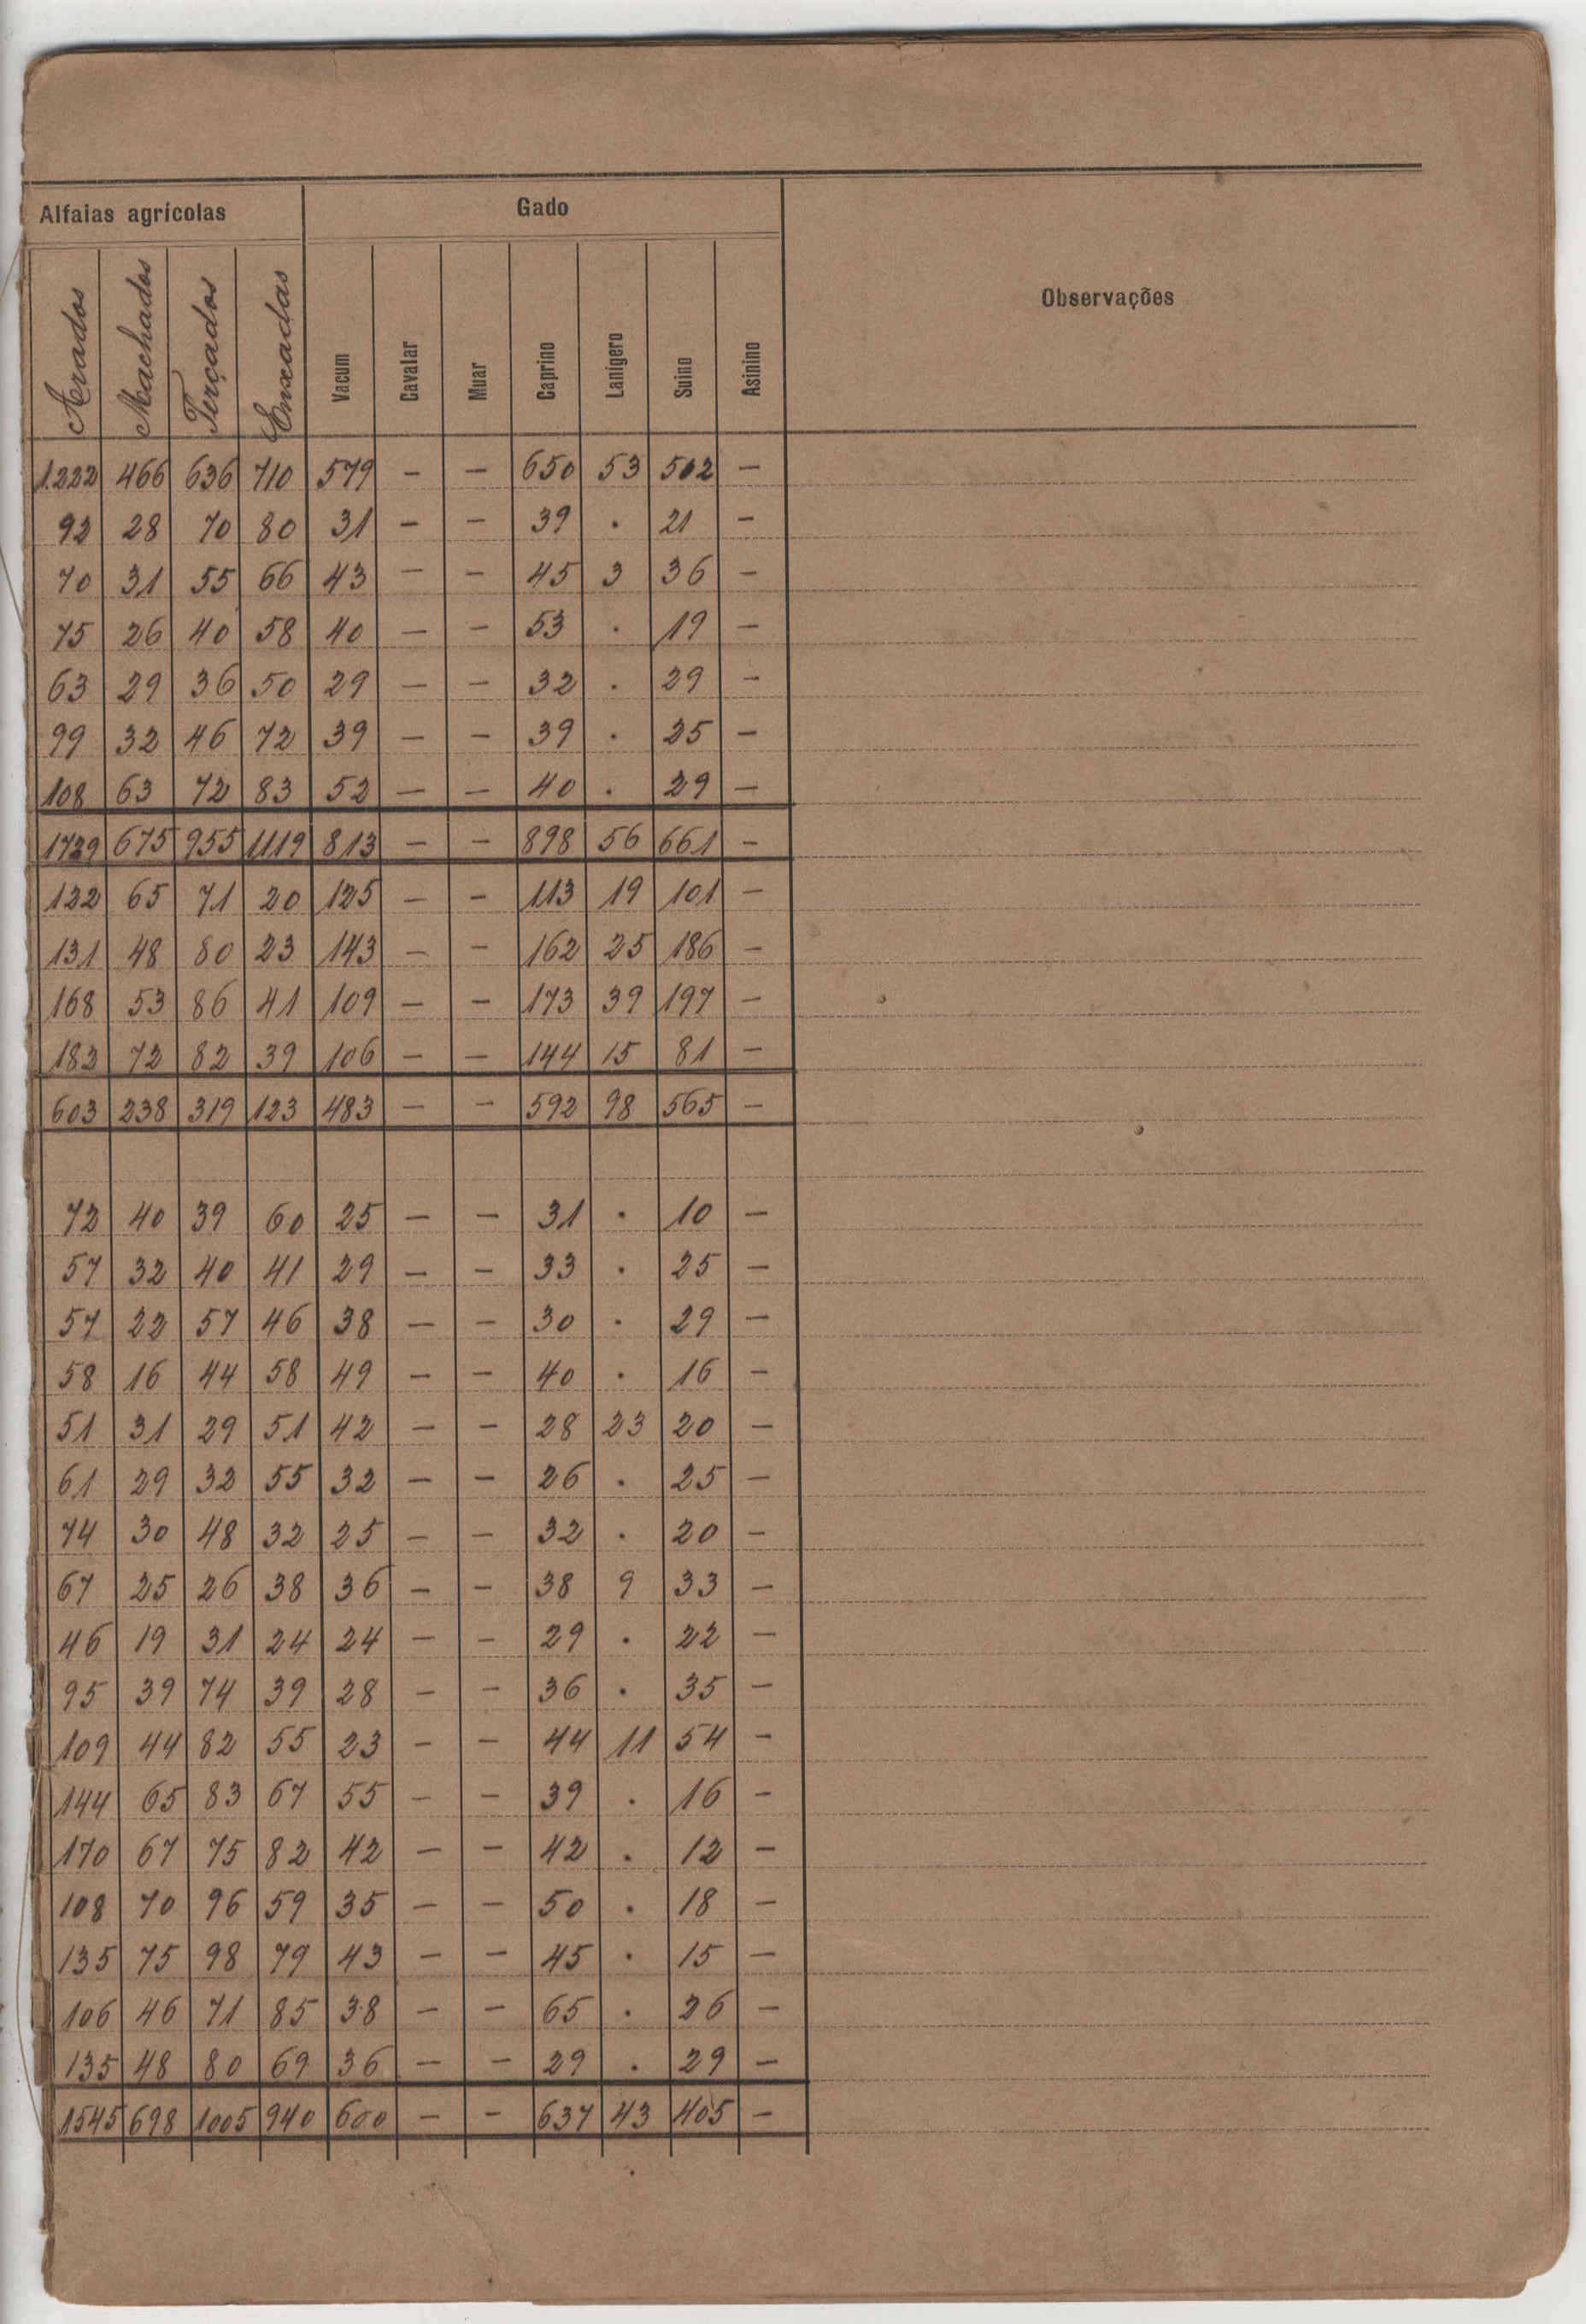 Alfaias agrícolas Gado Observações
Arados Machados Terçados Enxadas Vacum Cavalar Muar Caprino Lanígero Suino Asinino
1.222 466 636 710 579 — — 650 53 502 —
92 28 70 80 31 — — 39 . 21 —
70 31 55 66 43 — — 45 3 36 —
75 26 40 58 40 — — 53 . 19 —
63 29 36 50 29 — — 32 . 29 —
99 32 46 72 39 — — 39 . 25 —
108 63 72 83 52 — — 40 . 29 —
1729 675 955 1119 813 — — 898 56 661 —
122 65 71 20 125 — — 113 19 101 —
131 48 80 23 143 — — 162 25 186 —
168 53 86 41 109 — — 173 39 197 —
182 72 82 39 106 — — 144 15 81 —
603 238 319 123 483 — — 592 98 565 —
72 40 39 60 25 — — 31 . 10 —
57 32 40 41 29 — — 33 . 25 —
57 22 57 46 38 — — 30 . 29 —
58 16 44 58 49 — — 40 . 16 —
51 31 29 51 42 — — 28 23 20 —
61 29 32 55 32 — — 26 . 25 —
74 30 48 32 25 — — 32 . 20 —
67 25 26 38 36 — — 38 9 33 —
46 19 31 24 24 — — 29 . 22 —
95 39 74 39 28 — — 36 . 35 —
109 44 82 55 23 — — 44 11 54 —
144 65 83 67 55 — — 39 . 16 —
170 67 75 82 42 — — 42 . 12 —
108 70 96 59 35 — — 50 . 18 —
135 75 98 79 43 — — 45 . 15 —
106 46 71 85 38 — — 65 . 26 —
135 48 80 69 36 — — 29 . 29 —
1545 698 1005 940 600 — — 637 43 405 —